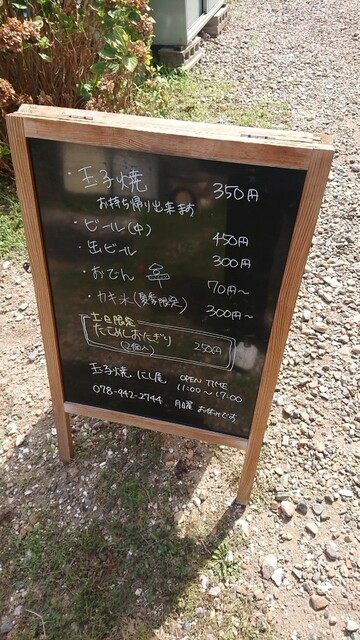 ・玉子焼 350円
お持ち帰り出来ます
・ビール(中) 450円
・缶ビール 300円
・おでん 70円〜
・カキ氷(夏季限定) 300円〜
土日限定
たこめしおにぎり
(2個入) 250円
玉子焼 にし尾 OPEN TIME
11:00〜17:00
078-942-2744 月曜 お休みです